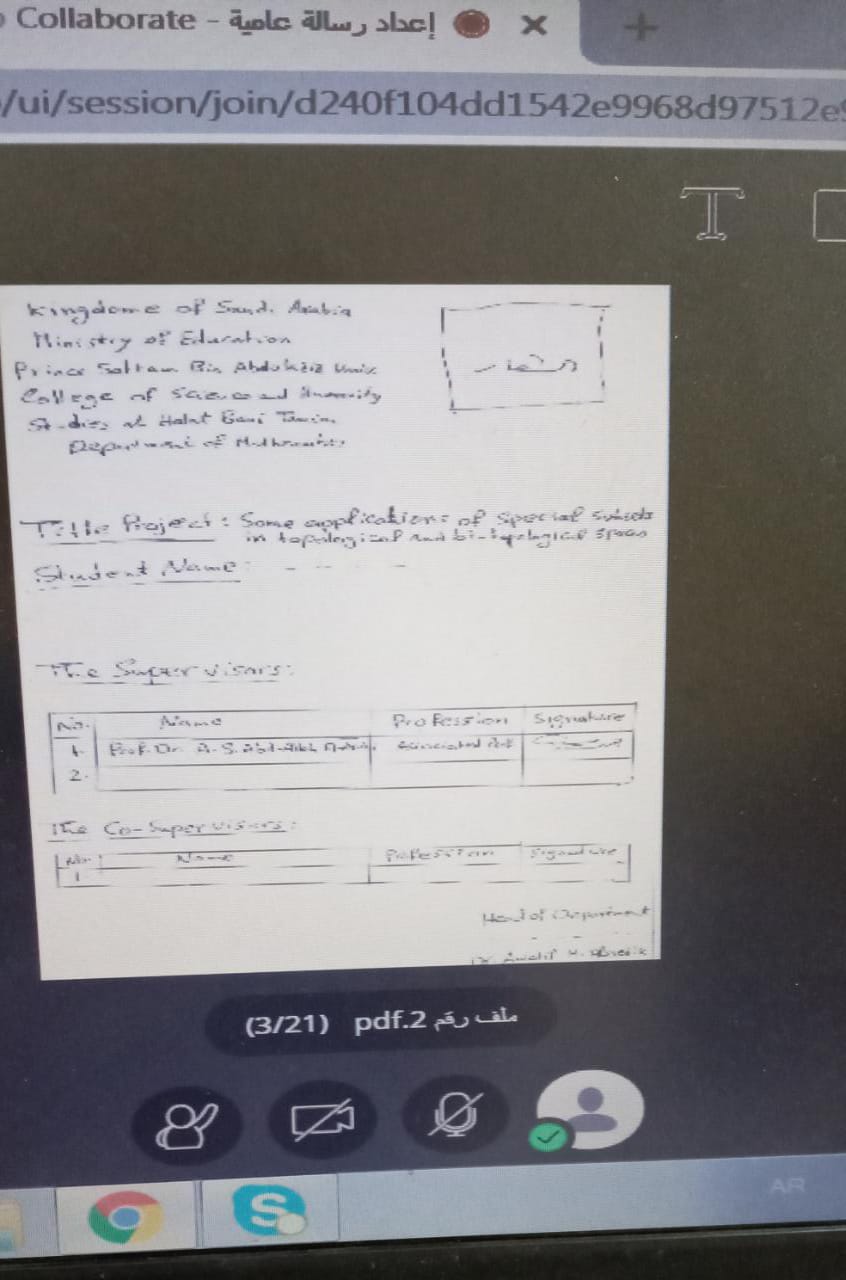 Collaborate - إعداد رسالة علمية
/ui/session/join/d240f104dd1542e9968d97512e9
T
Kingdome of Saud. Arabia
Ministry of Education
Prince Sattam Bin Abdulaziz Univ.
College of Science and Humanity
Studies at Hotat Bani Tamim.
Department of Mathematics
الشعار
Title Project: Some applications of special subsets
in topological and bi-topological spaces
Student Name: - - -
The Supervisors:
No. Name Profession Signature
1. Prof. Dr. A. S.
2.
The Co-Supervisors:
No. Name Profession Signature
1
Head of Department
Dr. H.
ملف رقم 2.pdf (3/21)
AR